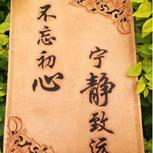 不忘初心
宁静致远